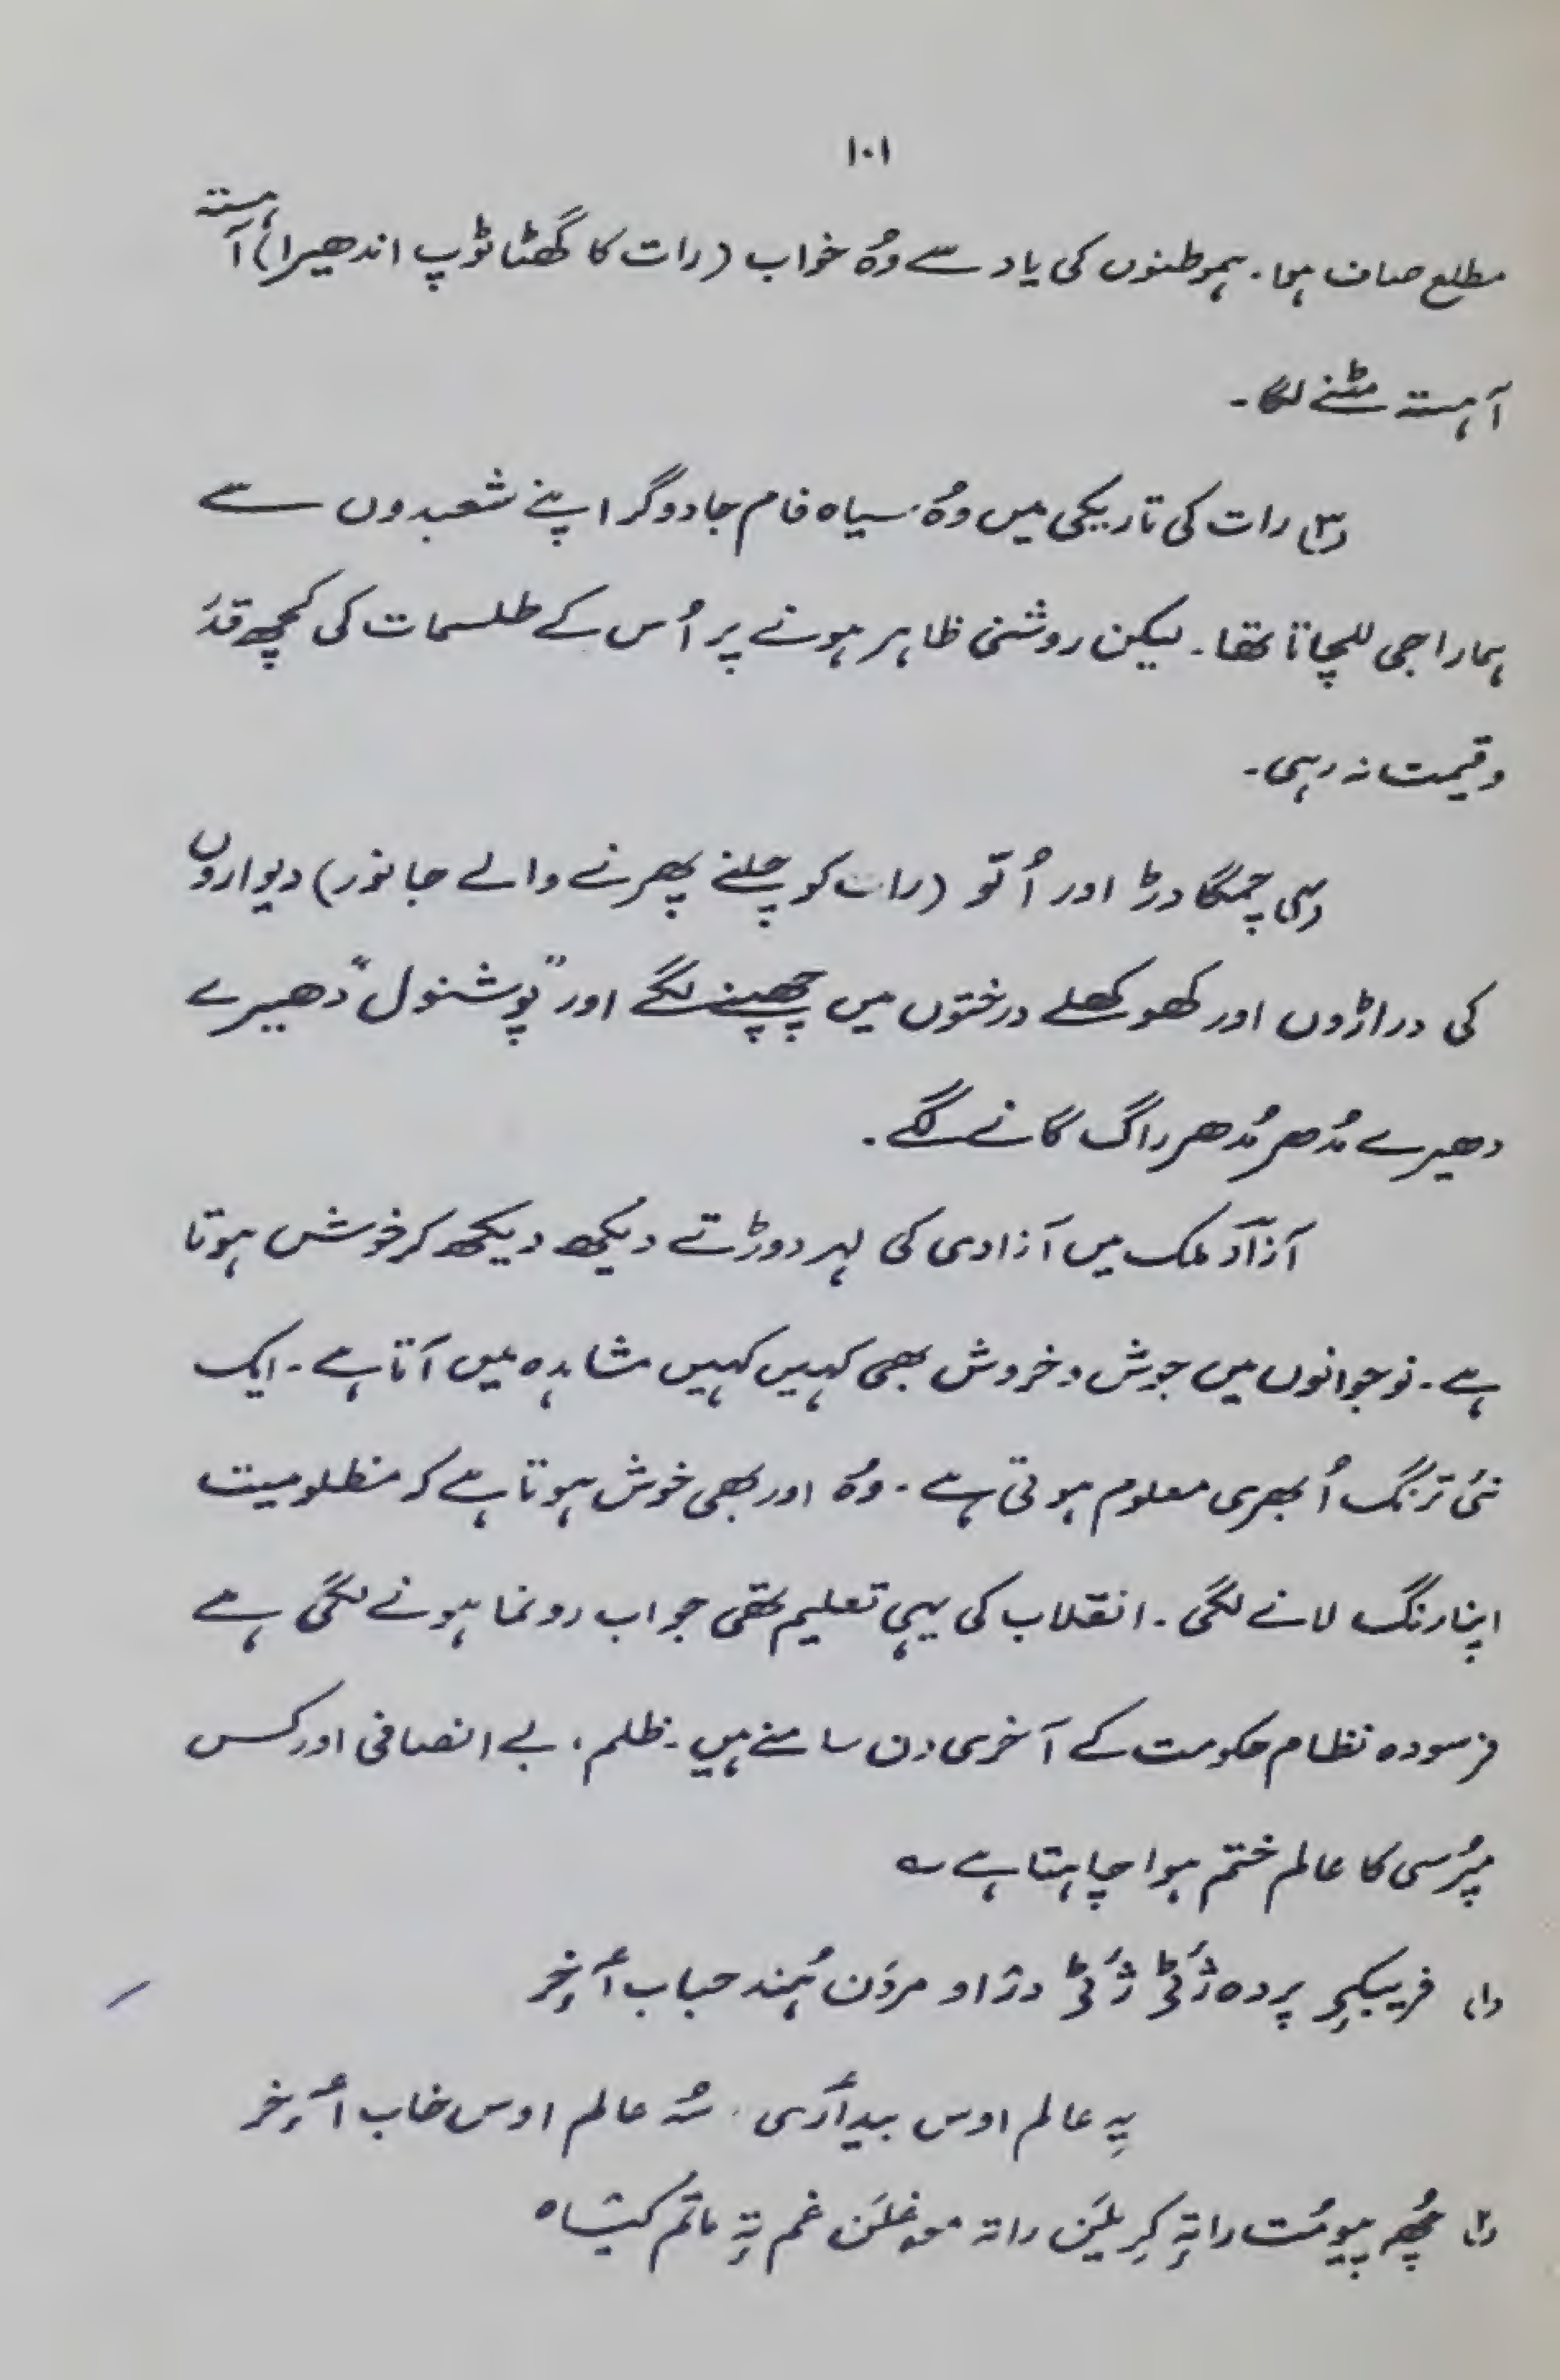 ۱۰۱
مطلع صاف ہوا۔ ہموطنوں کی یاد سے وُہ خواب (رات کا گھٹا ٹوپ اندھیرا) آہستہ
آہستہ مٹنے لگا۔
(۳) رات کی تاریکی میں وُہ سیاہ فام جادوگر اپنے شعبدوں سے
ہمارا جی للچاتا تھا۔ لیکن روشنی ظاہر ہونے پر اُس کے طلسمات کی کچھ قدَ
و قیمت نہ رہی۔
(۴) چمگادڑ اور اُلّو (رات کو چلنے پھرنے والے جانور) دیواروں
کی دراڑوں اور کھوکھلے درختوں میں چھپنے لگے اور "پوشنول" دھیرے
دھیرے مُدھر مُدھر راگ گانے لگے۔
آزادؔ ملک میں آزادی کی لہر دوڑتے دیکھ دیکھ کر خوش ہوتا
ہے۔ نوجوانوں میں جوش و خروش بھی کہیں کہیں مشاہدہ میں آتا ہے۔ ایک
نئی ترنگ اُبھری معلوم ہوتی ہے۔ وُہ اور بھی خوش ہوتا ہے کہ مظلومیت
اپنا رنگ لانے لگی۔ انقلاب کی یہی تعلیم تھی جو اب رونما ہونے لگی ہے
فرسودہ نظام حکومت کے آخری دن سامنے ہیں۔ ظلم، بے انصافی اور کس
پُرسی کا عالم ختم ہوا چاہتا ہے ؎
(۱) فریبکۍ پردہ ژٔٹۍ ژٔٹۍ دژاو مردَن ہُند حباب أخِر
یہِ عالم اوس بیدأری۔ سُہ عالم اوس خاب أخِر
(۲) چُھہ پیومُت راتہٕ کرٕیلَن راتہ موغلَن غم تہٕ ماتَم کیتاہ